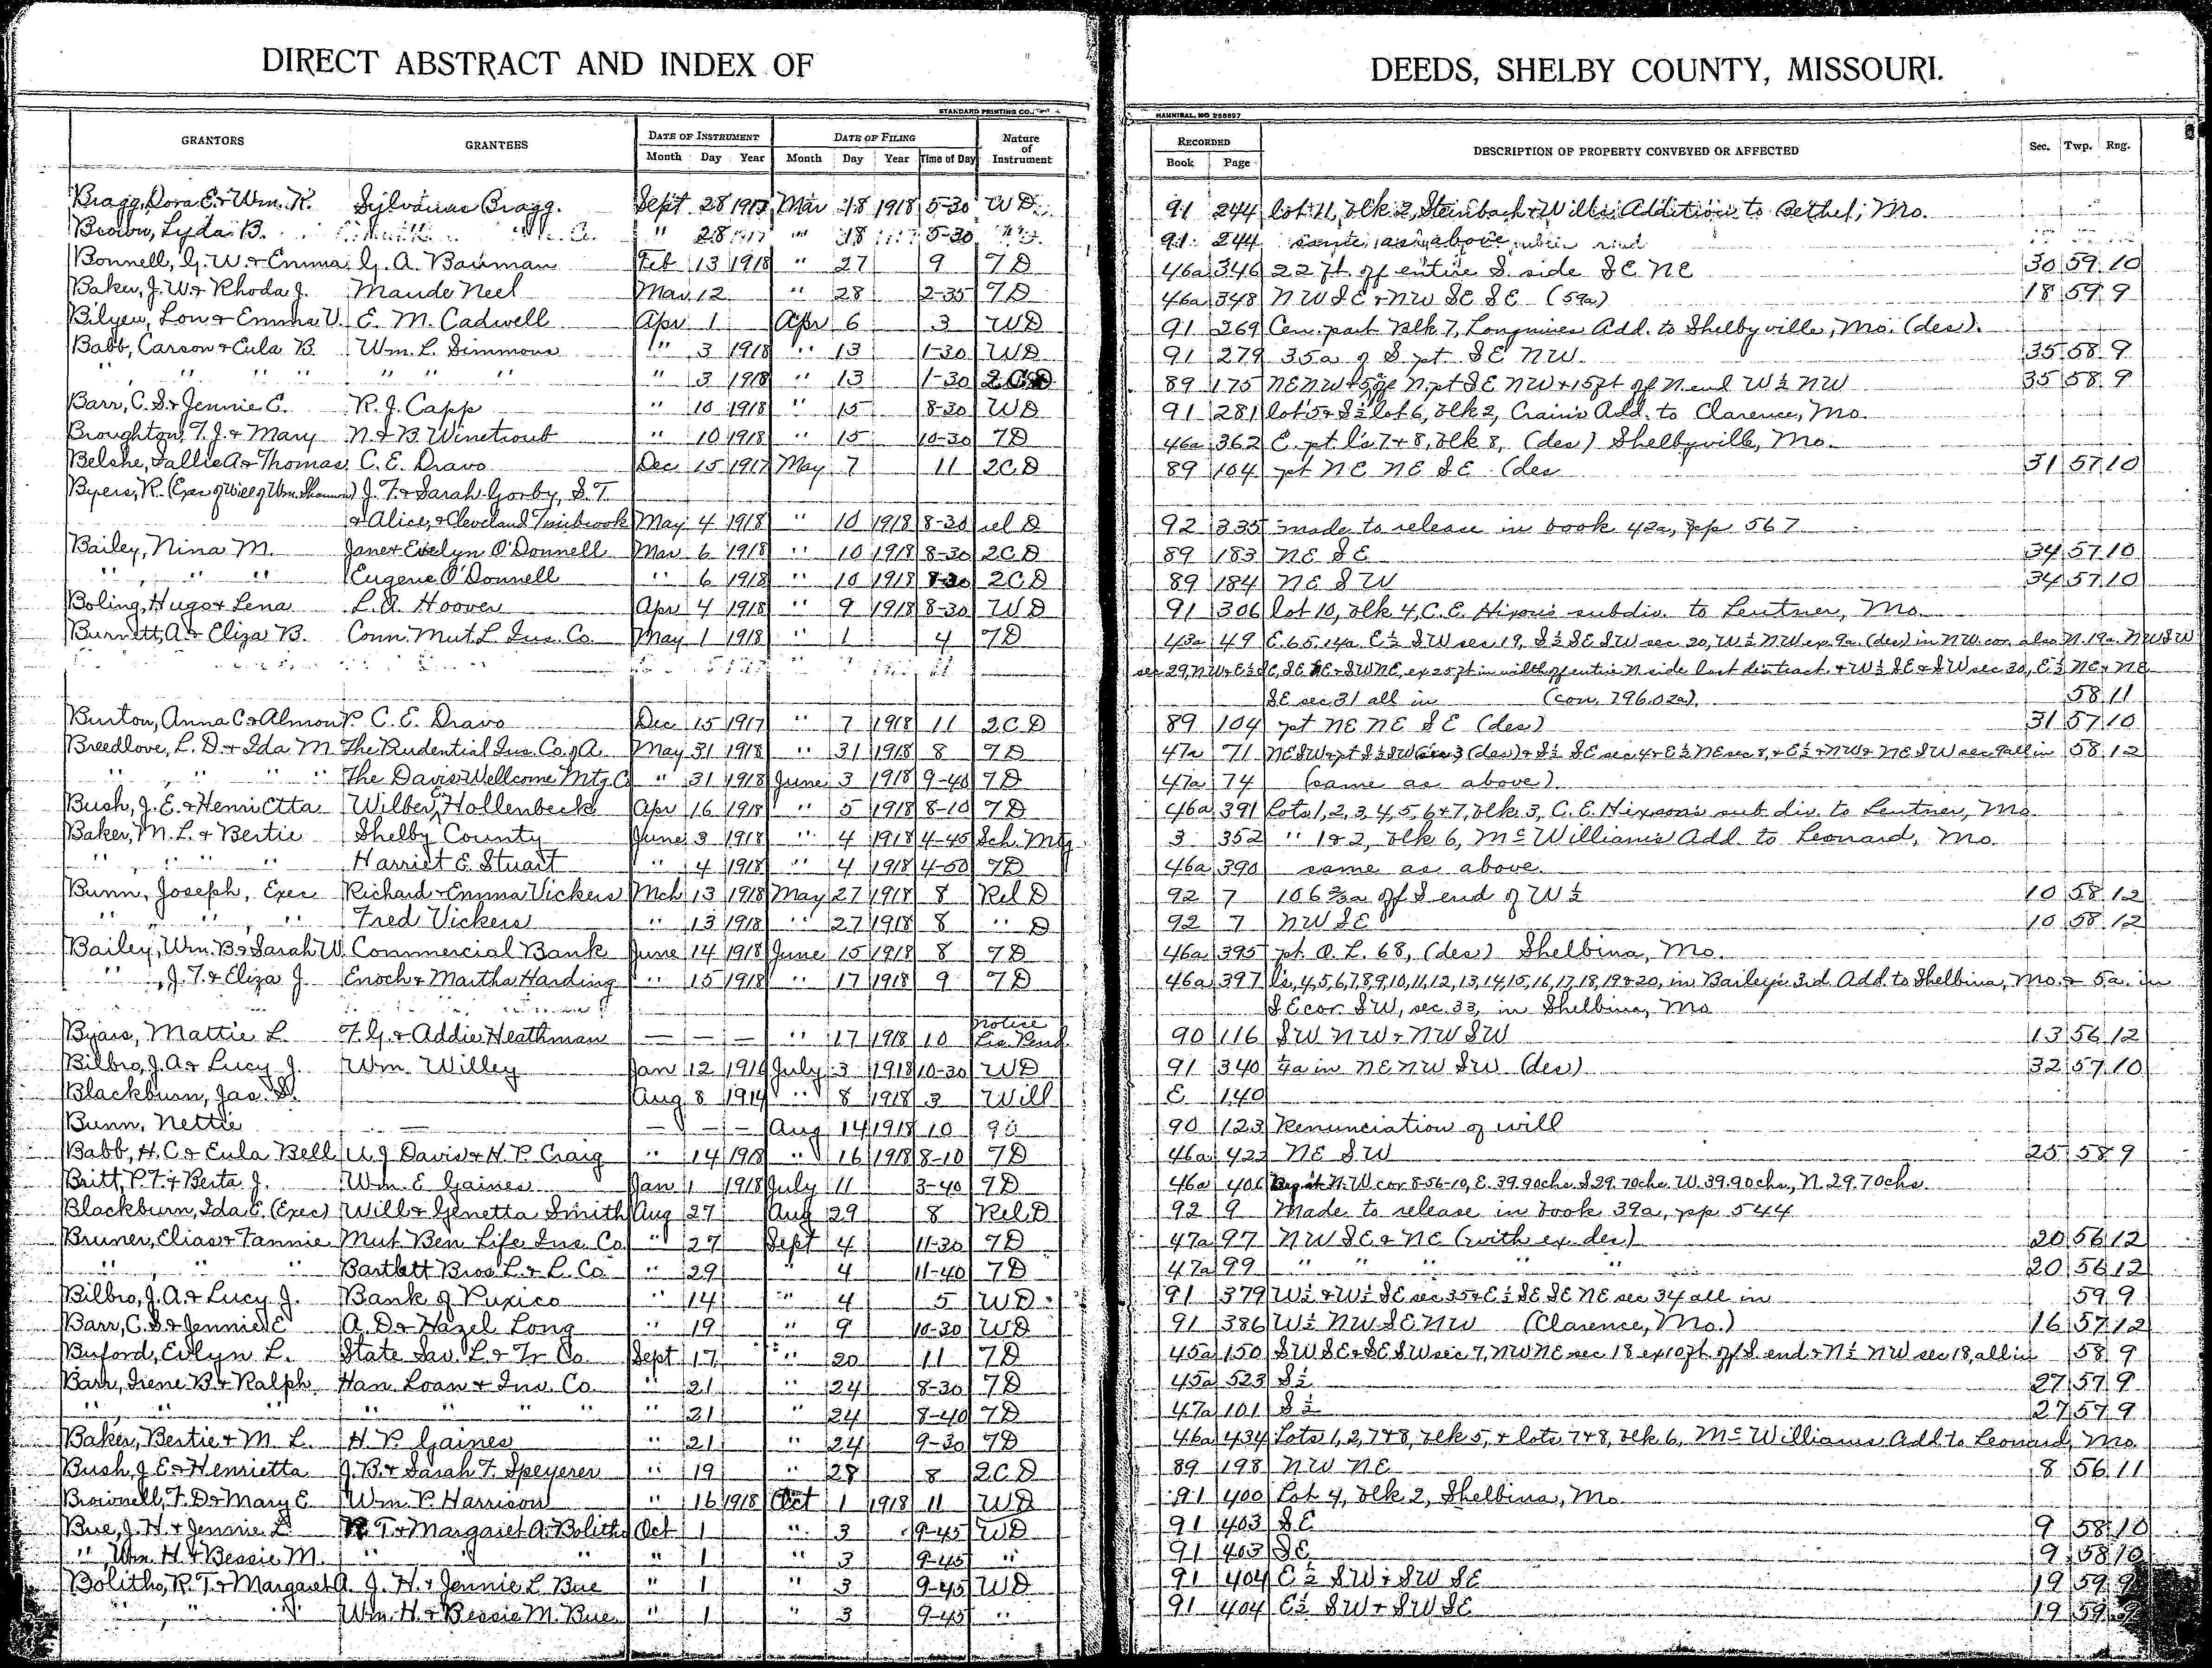 DIRECT ABSTRACT AND INDEX OF DEEDS, SHELBY COUNTY, MISSOURI.
STANDARD PRINTING CO. HANNIBAL, MO 258697
GRANTORS GRANTEES DATE OF INSTRUMENT DATE OF FILING Nature of Instrument RECORDED DESCRIPTION OF PROPERTY CONVEYED OR AFFECTED Sec. Twp. Rng.
Month Day Year Month Day Year Time of Day Book Page
Bragg, Dora E. & Wm. R. Sylvanus Bragg. Sept 28 1917 Mar 18 1918 5-30 WD 91 244 lot 11, blk 2, Steinbach & Wills Addition to Bethel, Mo.
Brown, Lyda B. " 28 " 18 5-30 91 244 same as above
Bonnell, G. W. & Emma G. A. Bauman Feb 13 1918 " 27 9 7D 46a 346 22 ft. of entire S. side SE NE 30 59 10
Baker, J. W. & Rhoda J. Maude Neel Mar 12 " 28 2-35 7D 46a 348 NW SE & NW SE SE (59a) 18 59 9
Bilyeu, Lon & Emma V. E. M. Cadwell Apr 1 Apr 6 3 WD 91 269 Cen. part Blk 7, Longmires Add. to Shelbyville, Mo. (des).
Babb, Carson & Eula B. Wm. L. Simmons " 3 1918 " 13 1-30 WD 91 279 35a of S pt. SE NW. 35 58 9
" " " " " " " " 3 1918 " 13 1-30 2CD 89 175 NE NW & 5a of N. pt SE NW & 15ft of N. end W½ NW 35 58 9
Barr, C. S. & Jennie E. R. J. Capp " 10 1918 " 15 8-30 WD 91 281 lot 5 & S½ lot 6, blk 2, Crain's Add. to Clarence, Mo.
Broughton, T. J. & Mary N. & B. Winetroub " 10 1918 " 15 10-30 7D 46a 362 E. pt l's 7 & 8, blk 8, (des) Shelbyville, Mo.
Belshe, Sallie A & Thomas C. E. Dravo Dec 15 1917 May 7 11 2CD 89 104 pt NE NE SE (des 31 57 10
Byers, R. (Exec of Will of Wm. Shannon) J. F. & Sarah Gorby, S. T.
& Alice, & Cleveland Timbrook May 4 1918 " 10 1918 8-30 rel D 92 335 made to release in book 42a, pp 567
Bailey, Nina M. Jane & Evelyn O'Donnell Mar 6 1918 " 10 1918 8-30 2CD 89 183 NE SE 34 57 10
" " " Eugene O'Donnell " 6 1918 " 10 1918 8-30 2CD 89 184 NE SW 34 57 10
Boling, Hugo & Lena L. A. Hoover Apr 4 1918 " 9 1918 8-30 WD 91 306 lot 10, blk 4, C. E. Hixon's subdiv. to Lentner, Mo.
Burnett, A. & Eliza B. Conn. Mut. L. Ins. Co. May 1 1918 " 1 4 7D 43a 49 E. 65.14a. E½ SW sec 19, S½ SE SW sec 20, W½ NW ex. 9a. (des) in N.W. cor. also N. 19a. NW SW
sec 29, NW & E½ SE, SE NE & SW NE, ex 25 ft in width off entire N side last des tract. & W½ SE & SW sec 30, E½ NE & NE
SE sec 31 all in (con. 796.02a). 58 11
Burton, Anna C. & Almon P. C. E. Dravo Dec 15 1917 " 7 1918 11 2CD 89 104 pt NE NE SE (des) 31 57 10
Breedlove, L. D. & Ida M. The Prudential Ins. Co. of A. May 31 1918 " 31 1918 8 7D 47a 71 NE SW & pt S½ SW sec 3 (des) & S½ SE sec 4 & E½ NE sec 8, & E½ & NW & NE SW sec 9 all in 58 12
" " " " The Davis Wellcome Mtg. C " 31 1918 June 3 1918 9-40 7D 47a 74 (same as above)
Bush, J. E. & Henrietta Wilber E. Hollenbeck Apr 16 1918 " 5 1918 8-10 7D 46a 391 Lots 1, 2, 3, 4, 5, 6 & 7, blk 3, C. E. Hixson's sub div. to Lentner, Mo.
Baker, M. L. & Bertie Shelby County June 3 1918 " 4 1918 4-45 Sch. Mtg. 3 352 " 1 & 2, blk 6, McWilliam's Add. to Leonard, Mo.
" " " Harriet E. Stuart " 4 1918 " 4 1918 4-50 7D 46a 390 same as above.
Bunn, Joseph, Exec Richard & Emma Vickers Mch 13 1918 May 27 1918 8 Rel D 92 7 106⅔a off S end of W½ 10 58 12
" " " Fred Vickers " 13 1918 " 27 1918 8 " D 92 7 NW SE 10 58 12
Bailey, Wm. B. & Sarah W. Commercial Bank June 14 1918 June 15 1918 8 7D 46a 395 pt. O. L. 68, (des) Shelbina, Mo.
" , J. T. & Eliza J. Enoch & Martha Harding " 15 1918 " 17 1918 9 7D 46a 397 l's, 4, 5, 6, 7, 8, 9, 10, 11, 12, 13, 14, 15, 16, 17, 18, 19 & 20, in Bailey's 3rd Add. to Shelbina, Mo. & 5a. in
SE cor SW, sec. 33, in Shelbina, Mo
Byars, Mattie L. F. G. & Addie Heathman — — — " 17 1918 10 Notice Lis Pend. 90 116 SW NW & NW SW 13 56 12
Bilbro, J. A. & Lucy J. Wm. Willey Jan 12 1916 July 3 1918 10-30 WD 91 340 ¼a in NE NW SW (des) 32 57 10
Blackburn, Jas. S. Aug 8 1914 " 8 1918 3 Will E 140
Bunn, Nettie — — — — Aug 14 1918 10 90 90 123 Renunciation of will
Babb, H. C. & Eula Bell U. J. Davis & H. P. Craig " 14 1918 " 16 1918 8-10 7D 46a 422 NE SW 25 58 9
Britt, P. T. & Berta J. Wm. E. Gaines Jan 1 1918 July 11 3-40 7D 46a 406 Beg at N. W cor 8-56-10, E. 39.90chs S 29.70chs. W. 39.90chs, N. 29.70chs.
Blackburn, Ida E. (Exec) Will & Genetta Smith Aug 27 Aug 29 8 Rel. D 92 9 Made to release in book 39a, pp 544
Bruner, Elias & Fannie Mut. Ben Life Ins. Co. " 27 Sept 4 11-30 7D 47a 97 NW SE & NE (with ex. des) 20 56 12
" " " Bartlett Bros L. & L. Co " 29 " 4 11-40 7D 47a 99 " " " " " 20 56 12
Bilbro, J. A. & Lucy J. Bank of Puxico " 14 " 4 5 WD 91 379 W½ & W½ SE sec 35 & E½ SE SE NE sec 34 all in 59 9
Barr, C. S. & Jennie E A. D. & Hazel Long " 19 " 9 10-30 WD 91 386 W½ NW SE NW (Clarence, Mo.) 16 57 12
Buford, Evlyn L. State Sav. L. & Tr Co. Sept 17 " 20 11 7D 45a 150 SW SE & SE SW sec 7, NW NE sec 18 ex 10ft off S. end & N½ NW sec 18, all in 58 9
Barr, Irene B. & Ralph Han. Loan & Inv. Co. " 21 " 24 8-30 7D 45a 523 S½ 27 57 9
" " " " " " " " 21 " 24 8-40 7D 47a 101 S½ 27 57 9
Baker, Bertie & M. L. H. P. Gaines " 21 " 24 9-30 7D 46a 434 Lots 1, 2, 7 & 8, blk 5, & lots 7 & 8, blk 6, McWilliams Add. to Leonard, Mo.
Bush, J. E. & Henrietta J. B. & Sarah F. Speyerer " 19 " 28 8 2CD 89 198 NW NE 8 56 11
Brownell, F. D. & Mary E. Wm. P. Harrison " 16 1918 Oct 1 1918 11 WD 91 400 Lot 4, blk 2, Shelbina, Mo
Bue, J. H. & Jennie L. R. T. & Margaret A. Bolitho Oct 1 " 3 9-45 WD 91 403 SE 9 58 10
" Wm. H. & Bessie M. " " " " 1 " 3 9-45 " 91 403 SE 9 58 10
Bolitho, R. T. & Margaret A. J. H. & Jennie L. Bue " 1 " 3 9-45 WD 91 404 E½ SW & SW SE 19 59 9
" " " Wm. H. & Bessie M. Bue " 1 " 3 9-45 " 91 404 E½ SW & SW SE 19 59 9